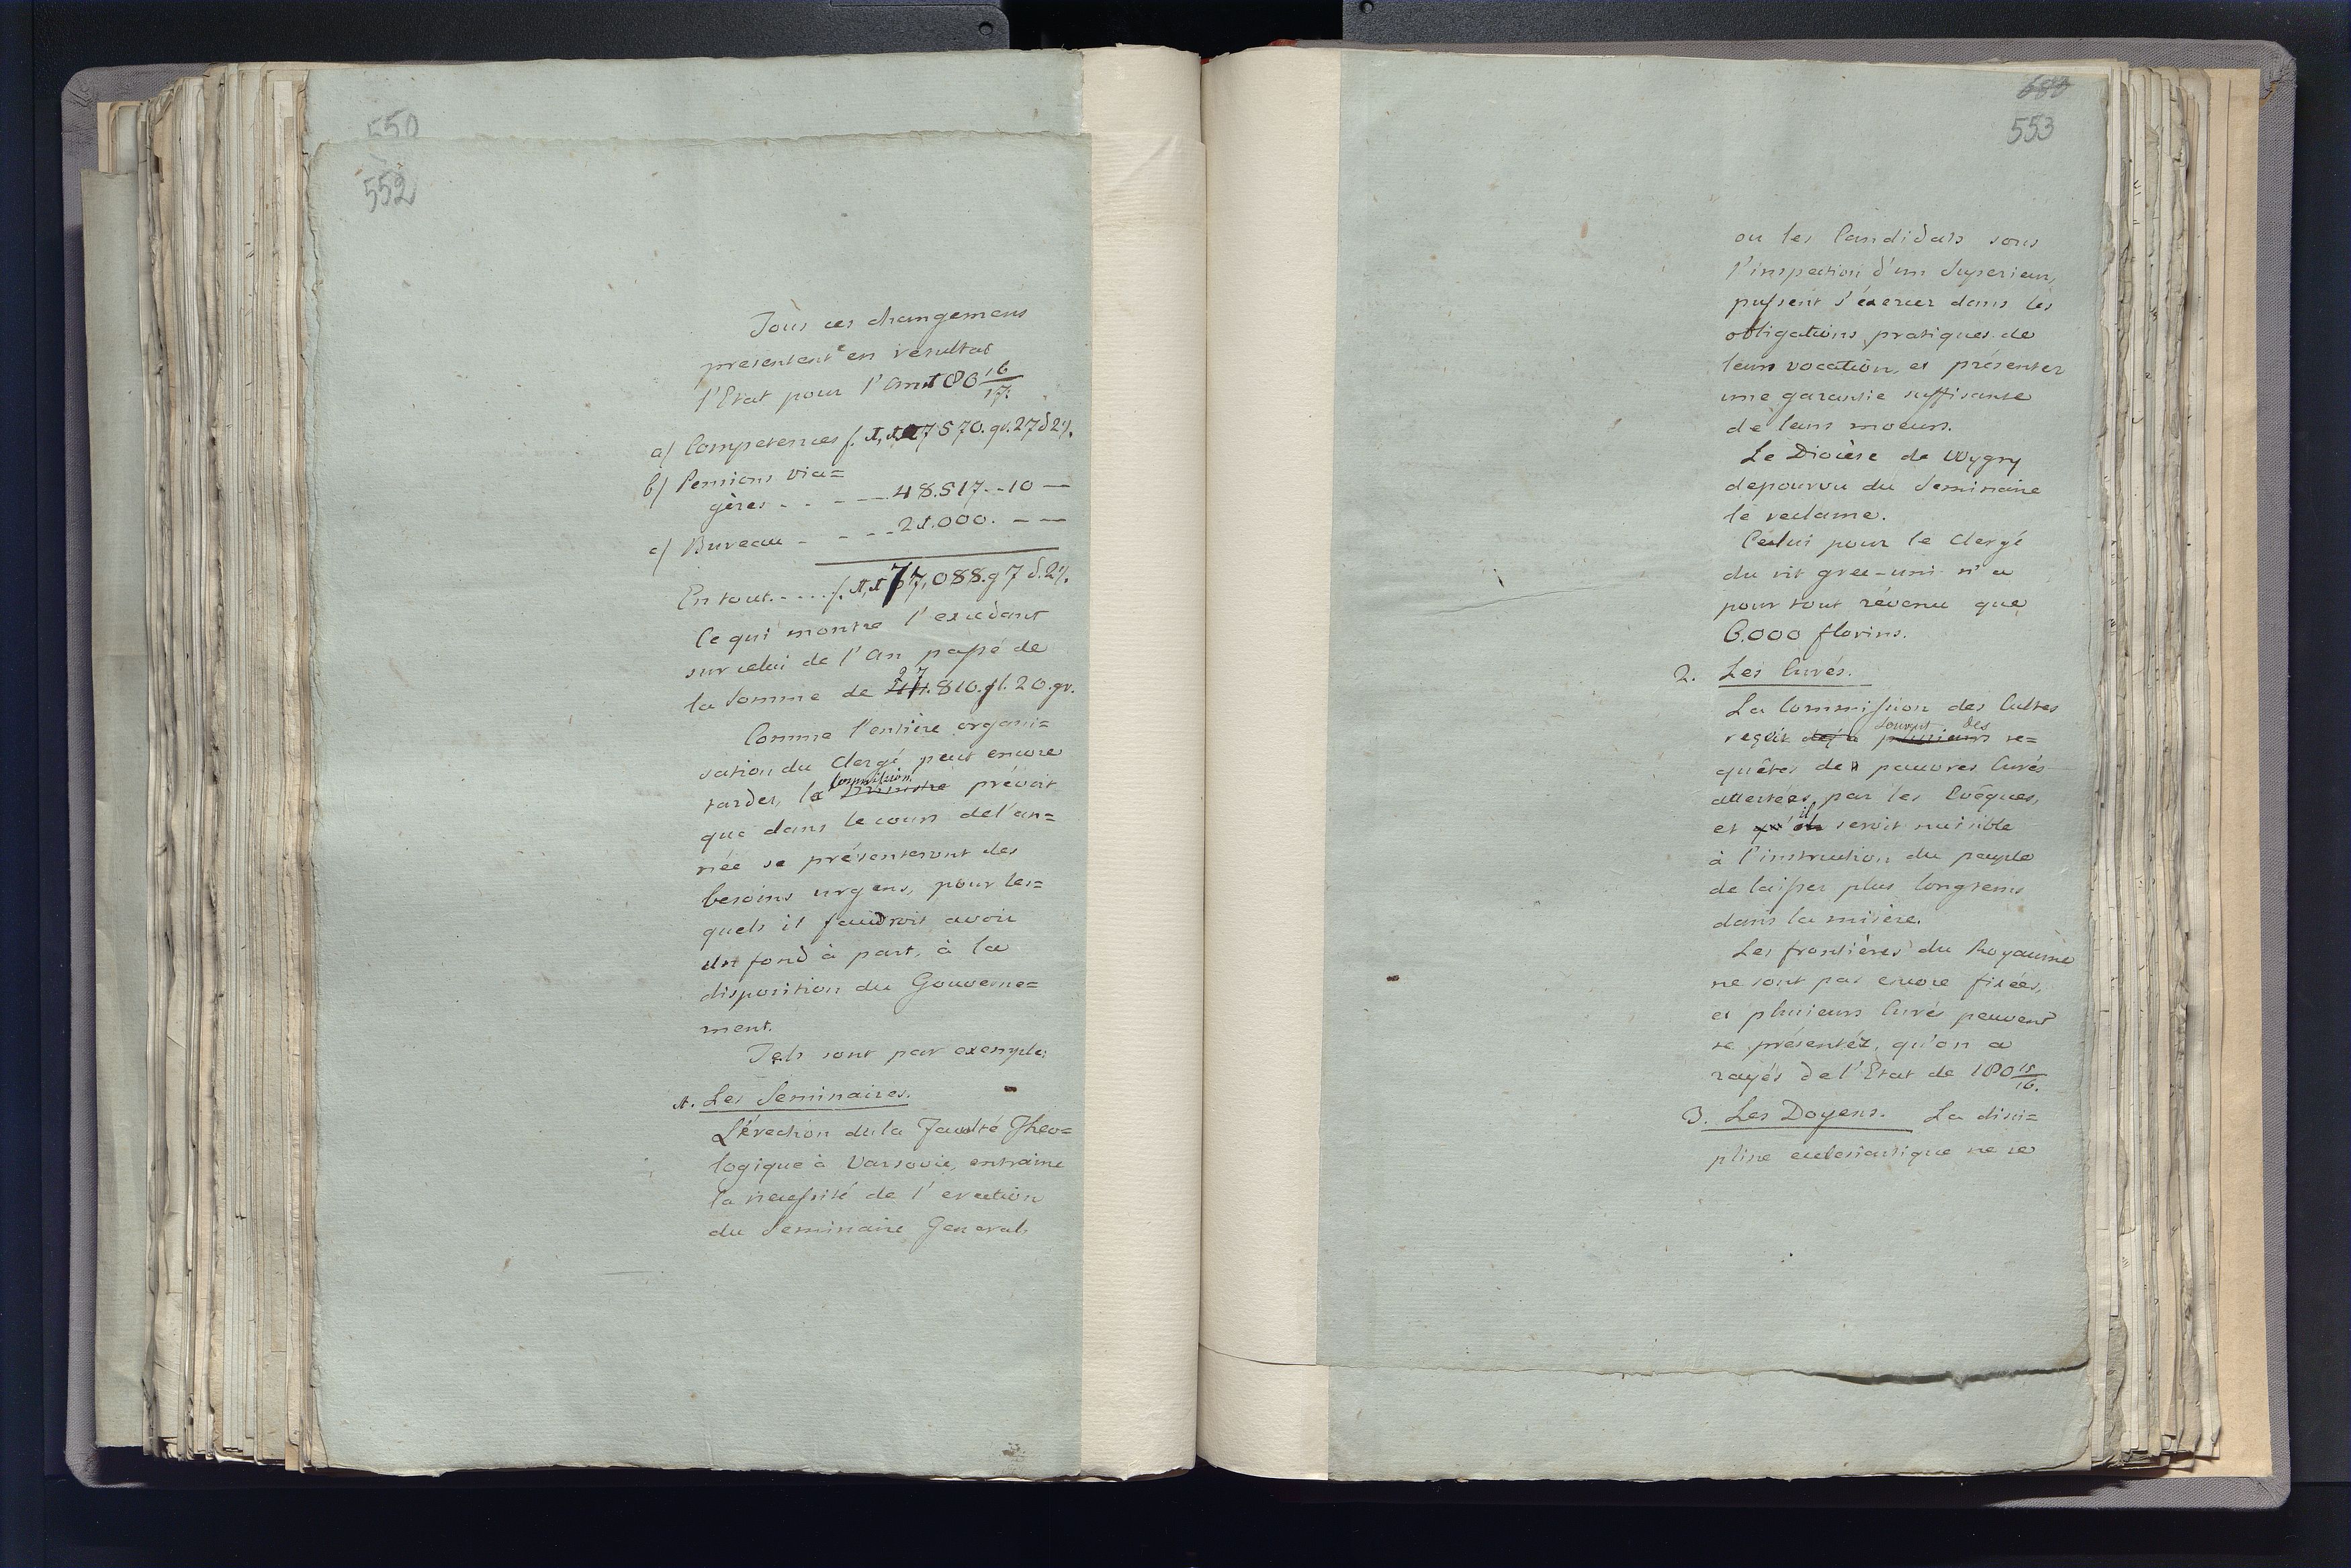 550
552
Tous ces changemens
presentent en resultat
l'Etat pour l'An 18 16/17.
a) Competences f. 1,107570. gr. 27 d 2⁄.
b) Pensions via=
gères - - - - 48.517. - 10 —
c) Bureau - - - - 21.000. - —
En tout. - - - . f. 1,177,088. g 7 d. 2⁄.
Ce qui montre l'excédant
sur celui de l'An passé de
la Somme de 27.810. fl. 20. gr.
Comme l'entière organi=
sation du Clergé peut encore
tarder, la Commission prévoit
que dans le cours de l'an=
née se présenteront des
besoins urgens, pour les=
quels il faudroit avoir
un fond à part, à la
disposition du Gouverne=
ment.
Tels sont par exemple:
1. Les Seminaires.
L'érection de la Faculté Theo=
logique à Varsovie, entraine
la necessité de l'erection
du Seminaire General,
683
553
ou les Candidats sous
l'inspection d'un Superieur,
pussent s'éxercer dans les
obligations pratiques de
leurs vocation, et présenter
une garantie suffisante
de leurs moeurs.
Le Diocèse de Wygry
depourvu du Seminaire
le reclame.
Celui pour le Clergé
du rit grec-uni n'a
pour tout révenu que
6.000 florins.
2. Les Curés.
La Commission des Cultes
reçoit déja plusieurs souvent des re=
quêtes de pauvres Curés
attestées par les Evêques,
et qu' il seroit nuisible
à l'instruction du peuple
de laisser plus longtems
dans la misère.
Les frontières du Royaume
ne sont pas encore fixées,
et plusieurs Curés peuvent
se présentéz, qu'on a
rayés de l'Etat de 18 15/16.
3. Les Doyens. La disci=
pline ecclesiastique ne se